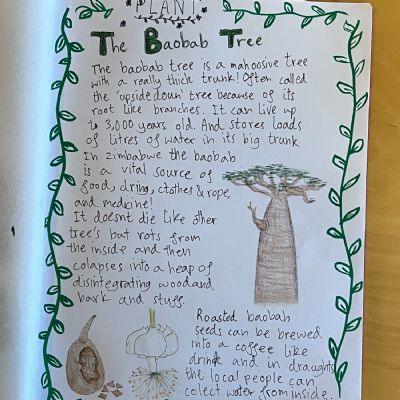 PLANT
The Baobab Tree
The baobab tree is a mahoosive tree
with a really thick trunk! Often called
the 'upside down' tree because of its
root like branches. It can live up
to 3,000 years old. And stores loads
of litres of water in its big trunk
In zimbabwe the baobab
is a vital source of
food, dring, clothes & rope,
and medicine!
It doesnt die like other
tree's but rots from
the inside and then
colapses into a heap of
disintegrating wood and
bark and stuff.
Roasted baobab
seeds can be brewed
into a coffee like
drink and in draughts
the local people can
colect water from inside.